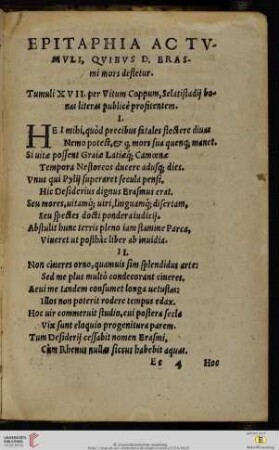 EPITAPHIA AC TV-
MVLI, QVIBVS D. ERAS-
mi mors defletur.
Tumuli XVII. per Vitum Coppum, Selatistadij bo-
nas literas publicè profitentem.
I.
HEI mihi, quòd precibus fatales flectere diuas
Nemo potest, & q̃ mors sua quenq; manet.
Si uitæ possent Graiæ Latiæq; Camœnæ
Tempora Nestoreos ducere adusq; dies.
Vnus qui Pylij superaret secula pensi,
Hic Desiderius dignus Erasmus erat.
Seu mores, uitamq; uiri, linguamq; disertam,
Seu species docti pondera iudicij.
Abstulit hunc terris pleno iam stamine Parca,
Viueret ut posthàc liber ab inuidia.
II.
Non cineres orno, quamuis sim splendidus arte:
Sed me plus multò condecorant cineres.
Aeui me tandem consumet longa uetustas:
Illos non poterit rodere tempus edax.
Hoc uir commeruit studio, cui postera secla
Vix sunt eloquio progenitura parem.
Tum Desiderij cessabit nomen Erasmi,
Cùm Rhenus nullas siccus habebit aquas.
Ee 4 Hoc